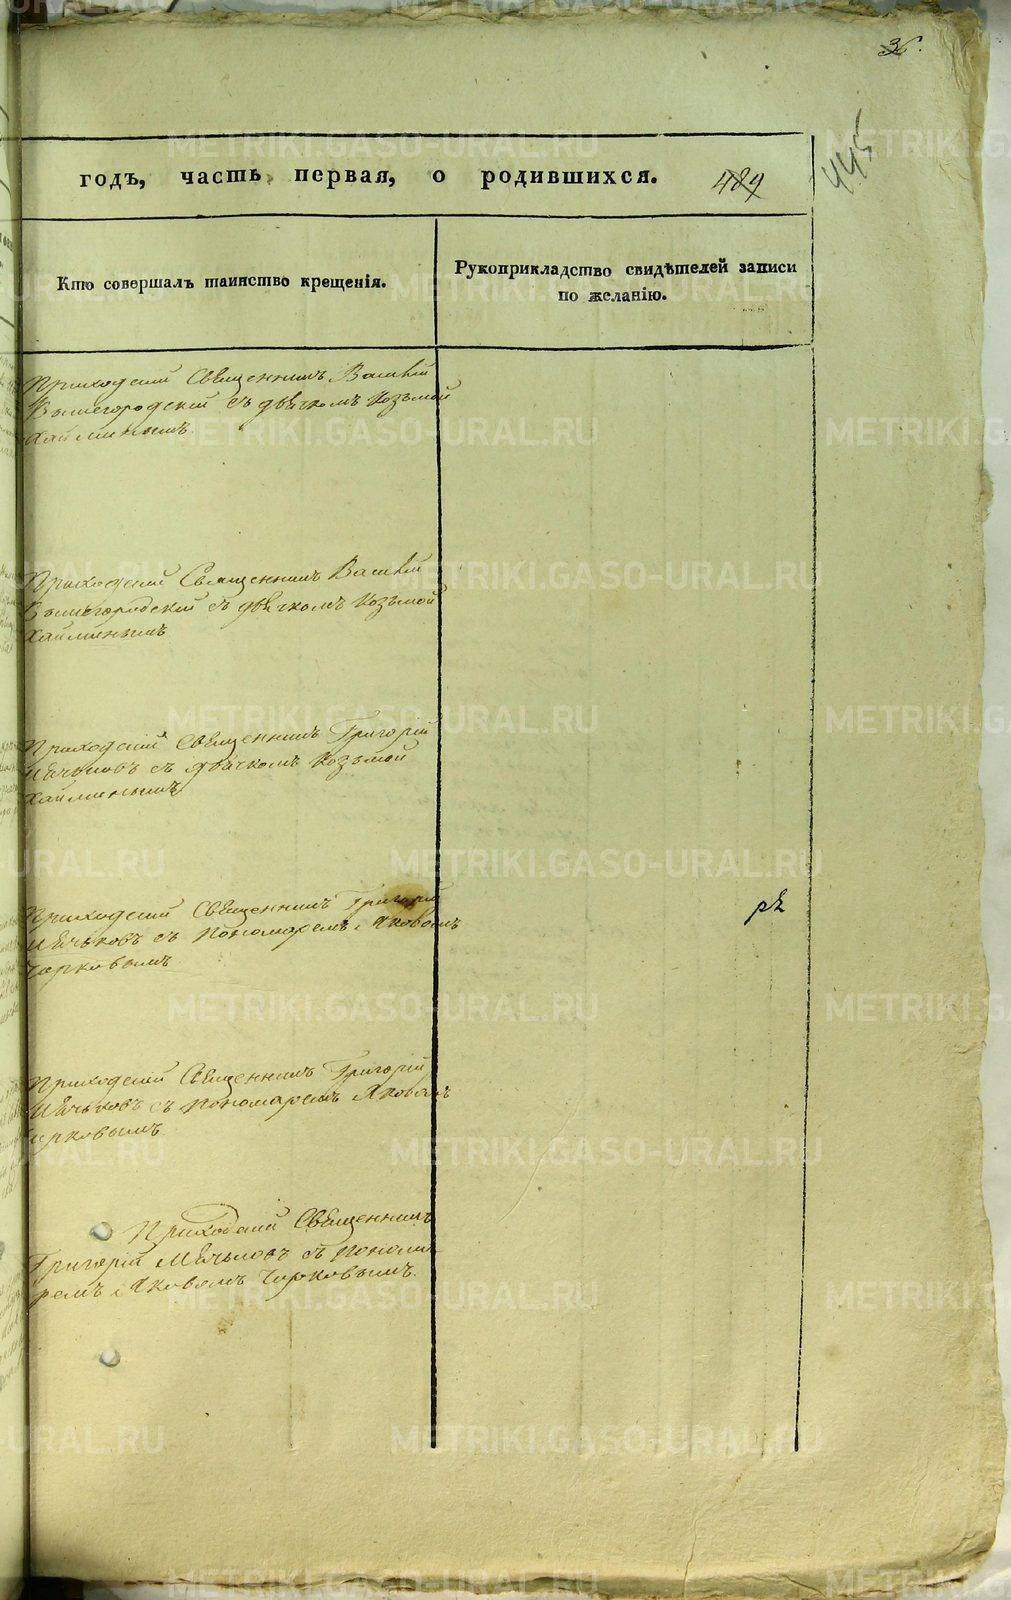 445
годъ, часть первая, о родившихся. 489
Кто совершалъ таинство крещенія.
Рукоприкладство свидѣтелей записи
по желанію.
Приходскій Священникъ Василій
Вышегородскій съ дьячкомъ Козьмой
Хайминымъ
Приходскій Священникъ Василій
Вышегородскій съ дьячкомъ Козьмой
Хайминымъ
Приходскій Священникъ Григорій
съ дьячкомъ Козьмой
Хайминымъ
Приходскій Священникъ Григорій
съ Пономаремъ Яковомъ
Чирковымъ
Приходскій Священникъ Григорій
съ Пономаремъ Яковомъ
Чирковымъ
Приходскій Священникъ
Григорій съ Понома
ремъ Яковомъ Чирковымъ.
METRIKI.GASO-URAL.RU